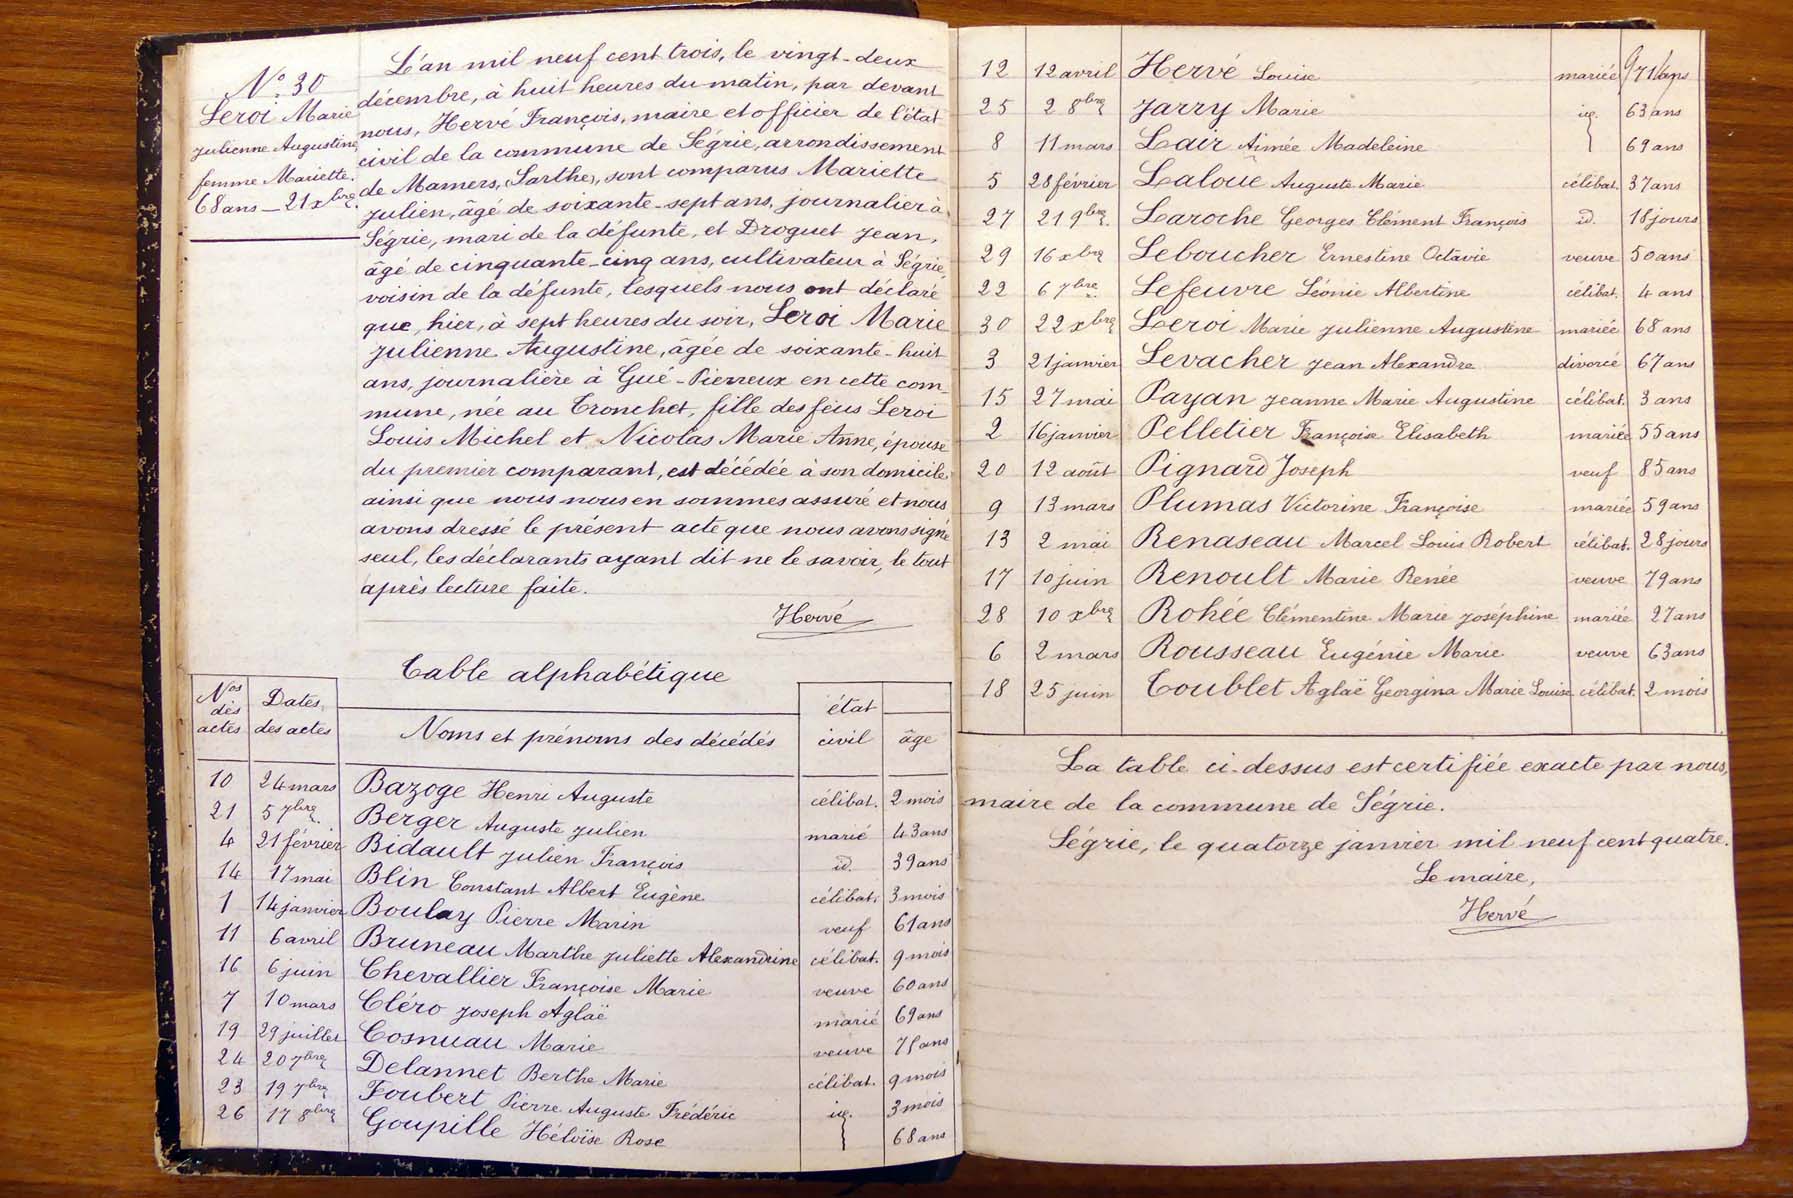 N° 30
Leroi Marie
Julienne Augustine
femme Mariette.
68 ans _ 21 xbre.
L'an mil neuf cent trois, le vingt-deux
décembre, à huit heures du matin, par devant
nous, Hervé François, maire et officier de l'état
civil de la commune de Ségrie, arrondissement
de Mamers, (Sarthe), sont comparus Mariette
Julien, âgé de soixante-sept ans, journalier à
Ségrie, mari de la défunte, et Droguet Jean,
âgé de cinquante-cinq ans, cultivateur à Ségrie,
voisin de la défunte, lesquels nous ont déclaré
que, hier, à sept heures du soir, Leroi Marie
Julienne Augustine, âgée de soixante-huit
ans, journalière à Gué-Pierreux en cette com-
mune, née au Tronchet, fille des feus Leroi
Louis Michel et Nicolas Marie Anne, épouse
du premier comparant, est décédée à son domicile
ainsi que nous nous en sommes assuré et nous
avons dressé le présent acte que nous avons signé
seul, les déclarants ayant dit ne le savoir, le tout
après lecture faite.
Hervé
Table alphabétique
Nos des actes | Dates des actes | Noms et prénoms des décédés | état civil | âge
10 24 mars Bazoge Henri Auguste célibat. 2 mois
21 5 7bre. Berger Auguste Julien marié 43 ans
4 21 février Bidault Julien François id. 39 ans
14 17 mai Blin Constant Albert Eugène célibat. 3 mois
1 14 janvier Boulay Pierre Marin veuf 61 ans
11 6 avril Bruneau Marthe Juliette Alexandrine célibat. 9 mois
16 6 juin Chevallier Françoise Marie veuve 60 ans
7 10 mars Cléro Joseph Aglaë marié 69 ans
19 29 juillet Cosnuau Marie veuve 75 ans
24 20 7bre Delannet Berthe Marie célibat. 9 mois
23 19 7bre Foubert Pierre Auguste Frédéric id. 3 mois
26 17 8bre Goupille Héloïse Rose 68 ans
12 12 avril Hervé Louise mariée 71 ans
25 2 8bre Jarry Marie id. 63 ans
8 11 mars Lair Aimée Madeleine 69 ans
5 28 février Laloue Auguste Marie célibat. 37 ans
27 21 9bre. Laroche Georges Clément François id. 18 jours
29 16 xbre Leboucher Ernestine Octavie veuve 50 ans
22 6 7bre Lefeuvre Léonie Albertine célibat. 4 ans
30 22 xbre Leroi Marie Julienne Augustine mariée 68 ans
3 21 janvier Levacher Jean Alexandre divorcé 67 ans
15 27 mai Payan Jeanne Marie Augustine célibat. 3 ans
2 16 janvier Pelletier Françoise Elisabeth mariée 55 ans
20 12 août Pignard Joseph veuf 85 ans
9 13 mars Plumas Victorine Françoise mariée 59 ans
13 2 mai Renaseau Marcel Louis Robert célibat. 28 jours
17 10 juin Renoult Marie Renée veuve 79 ans
28 10 xbre Rohée Clémentine Marie Joséphine mariée 27 ans
6 2 mars Rousseau Eugénie Marie veuve 63 ans
18 25 juin Toublet Aglaë Georgina Marie Louise célibat. 2 mois
La table ci-dessus est certifiée exacte par nous,
maire de la commune de Ségrie.
Ségrie, le quatorze janvier mil neuf cent quatre.
Le maire,
Hervé